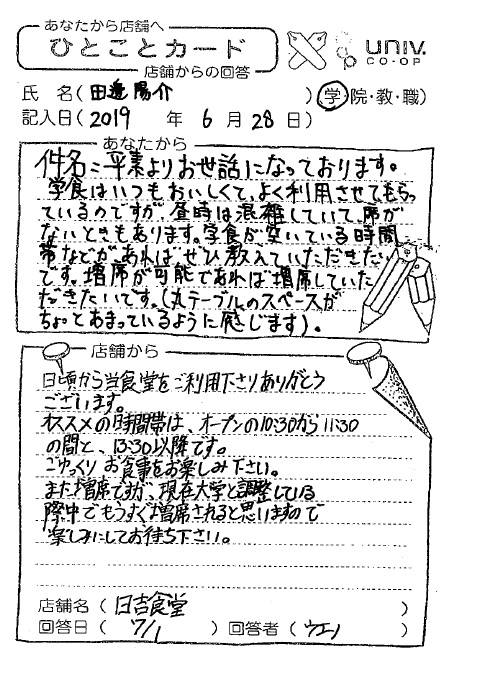 あなたから店舗へ
ひとことカード
店舗からの回答
UNIV.
CO-OP
氏 名(田邉陽介)学・院・教・職)
記入日(2019 年 6 月 28 日)
あなたから
件名:平素よりお世話になっております。
学食はいつもおいしくて、よく利用させてもらっ
ているのですが、昼時は混雑していて、席が
ないときもあります。学食が空いている時間
帯などがあればぜひ教えていただきたい
です。増席が可能であれば増席していた
だきたいです。(丸テーブルのスペースが
ちょっとあまっているように感じます)。
店舗から
日頃から当食堂をご利用下さりありがとう
ございます。
オススメの時間帯は、オープンの10:30から11:30
の間と、13:30以降です。
ごゆっくりお食事をお楽しみ下さい。
また増席ですが、現在大学と調整している
際中でもうすぐ増席されると思いますので
楽しみにしてお待ち下さい。
店舗名(日吉食堂)
回答日(7/1)回答者(ウエノ)